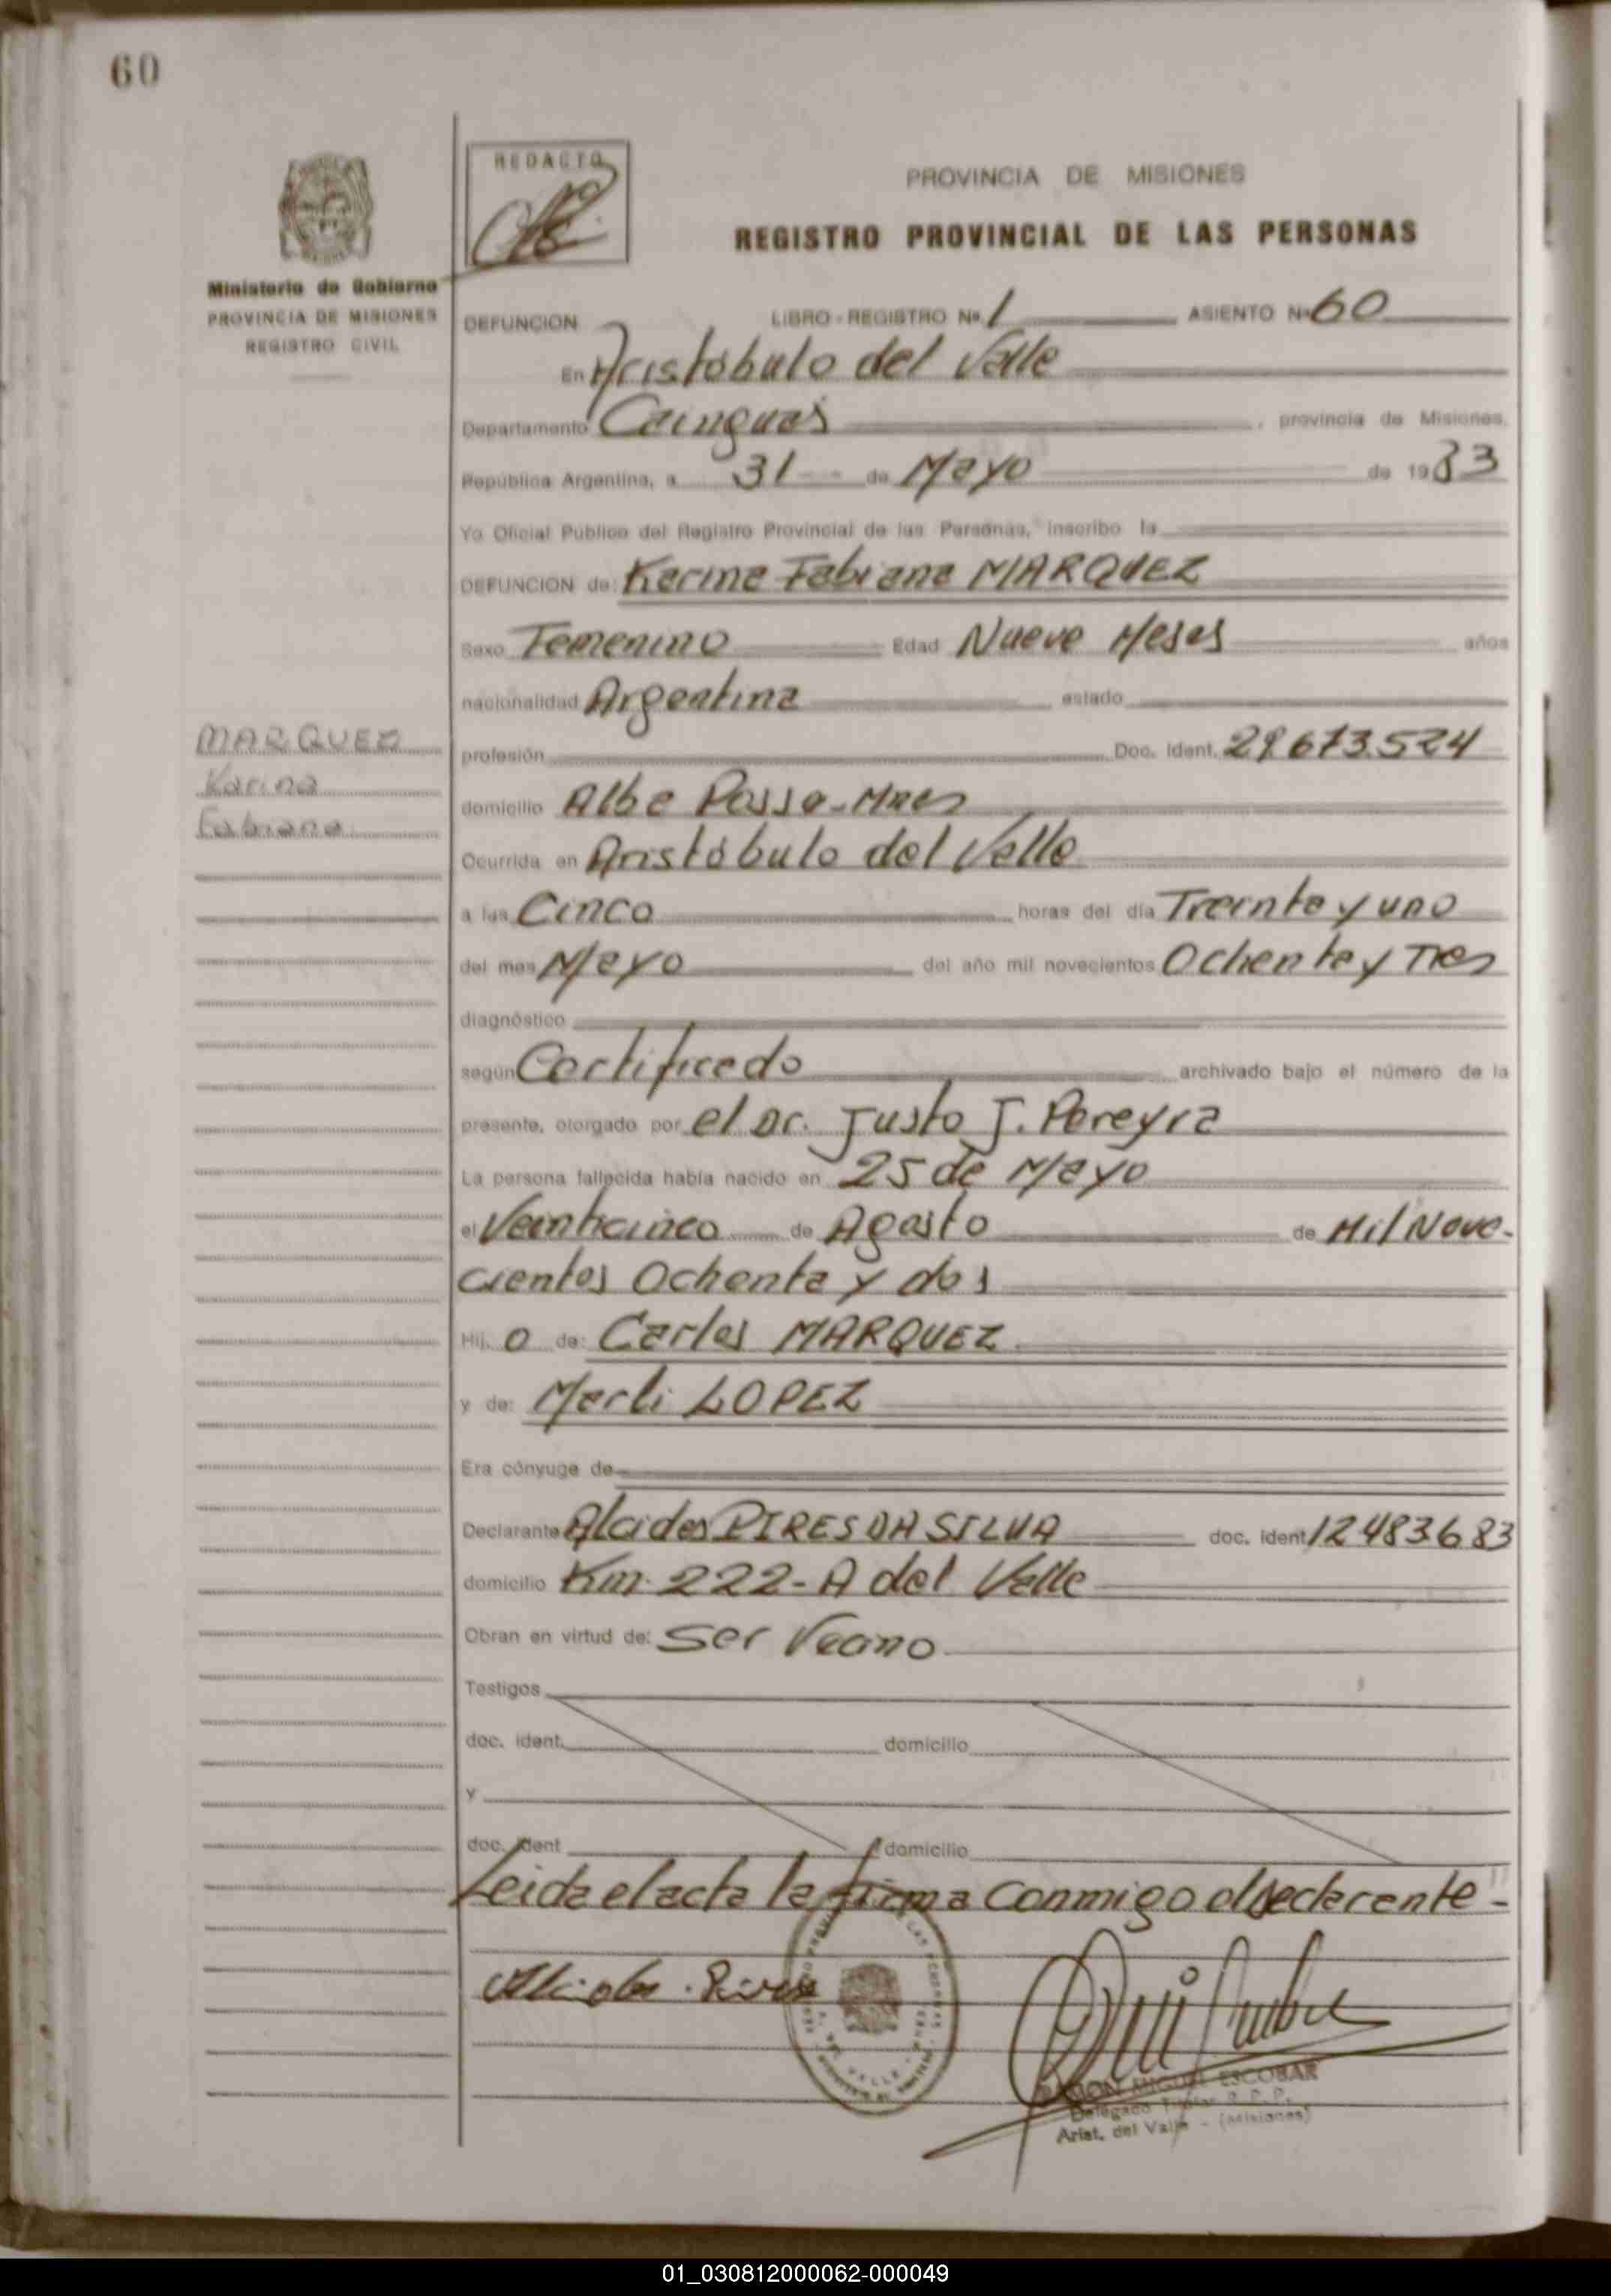 60
REDACTO
PROVINCIA DE MISIONES
REGISTRO PROVINCIAL DE LAS PERSONAS
Ministerio de Gobierno
PROVINCIA DE MISIONES
REGISTRO CIVIL
DEFUNCION LIBRO - REGISTRO Nº 1 ASIENTO Nº 60
En Aristóbulo del Valle
Departamento Cainguás , provincia de Misiones.
República Argentina, a 31 de Mayo de 1983
Yo Oficial Público del Registro Provincial de las Personas, inscribo la
DEFUNCION de: Karina Fabiana MARQUEZ
Sexo Femenino Edad Nueve Meses años
nacionalidad Argentina estado
MARQUEZ
Karina
Fabiana
profesión Doc. Ident. 29.673.524
domicilio Alba Posse-Mnes
Ocurrida en Aristóbulo del Valle
a las Cinco horas del día Treinta y uno
del mes Mayo del año mil novecientos Ochenta y Tres
diagnóstico
según Certificado archivado bajo el número de la
presente, otorgado por el Dr. Justo J. Pereyra
La persona fallecida había nacido en 25 de Mayo
el Veinticinco de Agosto de Mil Nove-
cientos Ochenta y dos
Hij o de: Carlos MARQUEZ
y de: Marli LOPEZ
Era cónyuge de
Declarante Alcides PIRES DA SILVA doc. ident 12483683
domicilio Km. 222-A del Valle
Obran en virtud de: Ser Vecino
Testigos
doc. ident. domicilio
y
doc. ident domicilio
Leida el acta la firma conmigo el declarente-
RAMON MIGUEL ESCOBAR
Delegado Titular R.P.P.
Arist. del Valle - (Misiones)
01_030812000062-000049